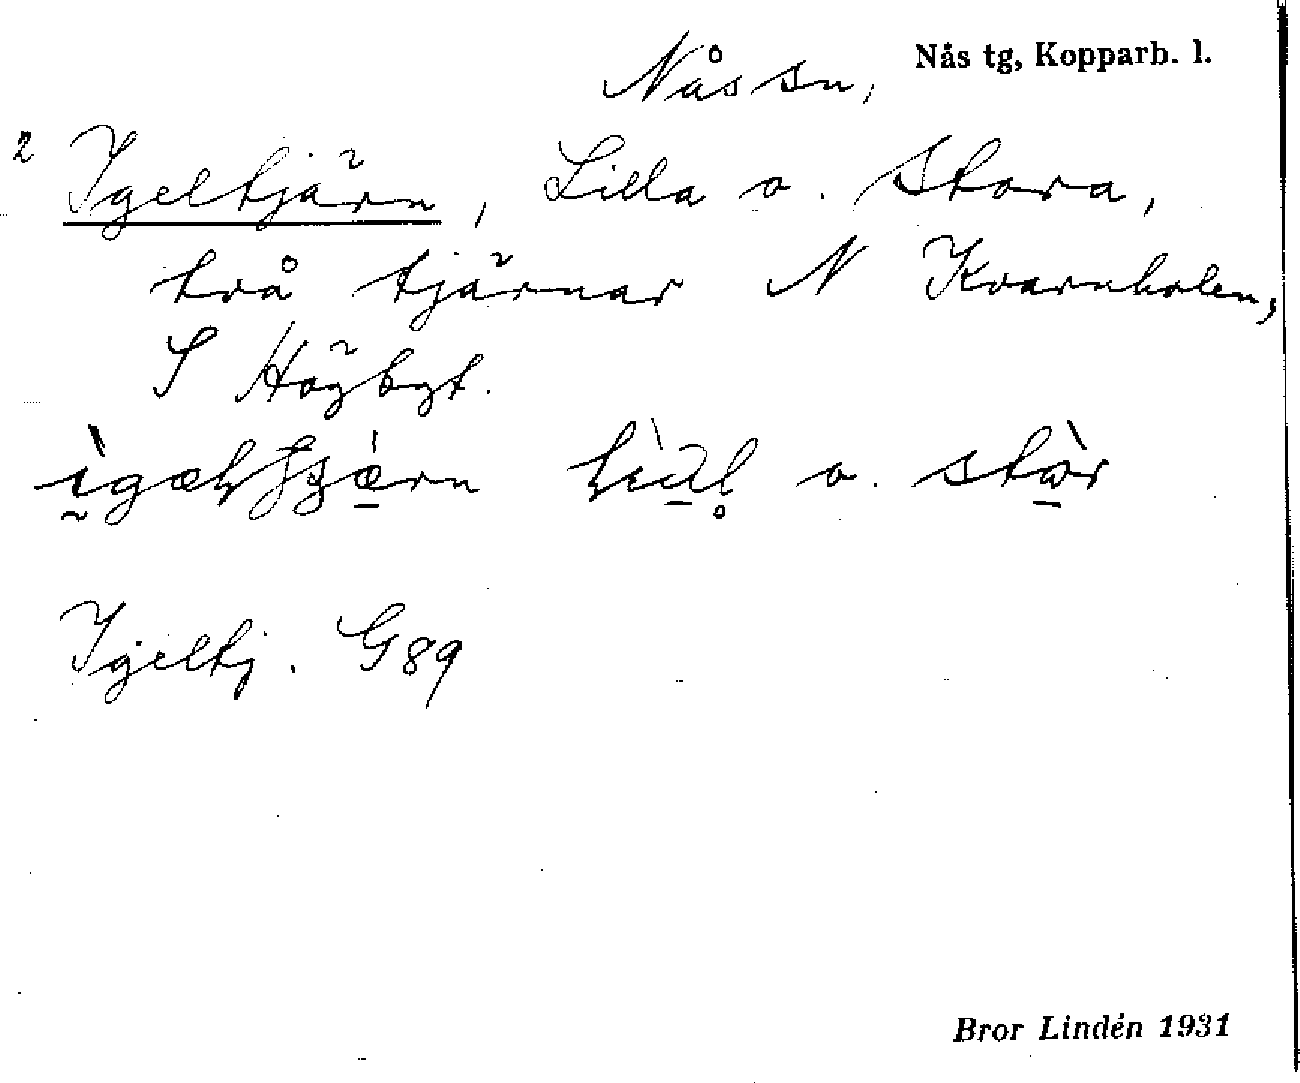 Nås tg, Kopparb. l.
Nås sn,
2 Igeltjärn, Lilla o. Stora,
två tjärnar N Kvarnholen,
S Högbyt.
o.
Igeltj. G89
Bror Lindén 1931